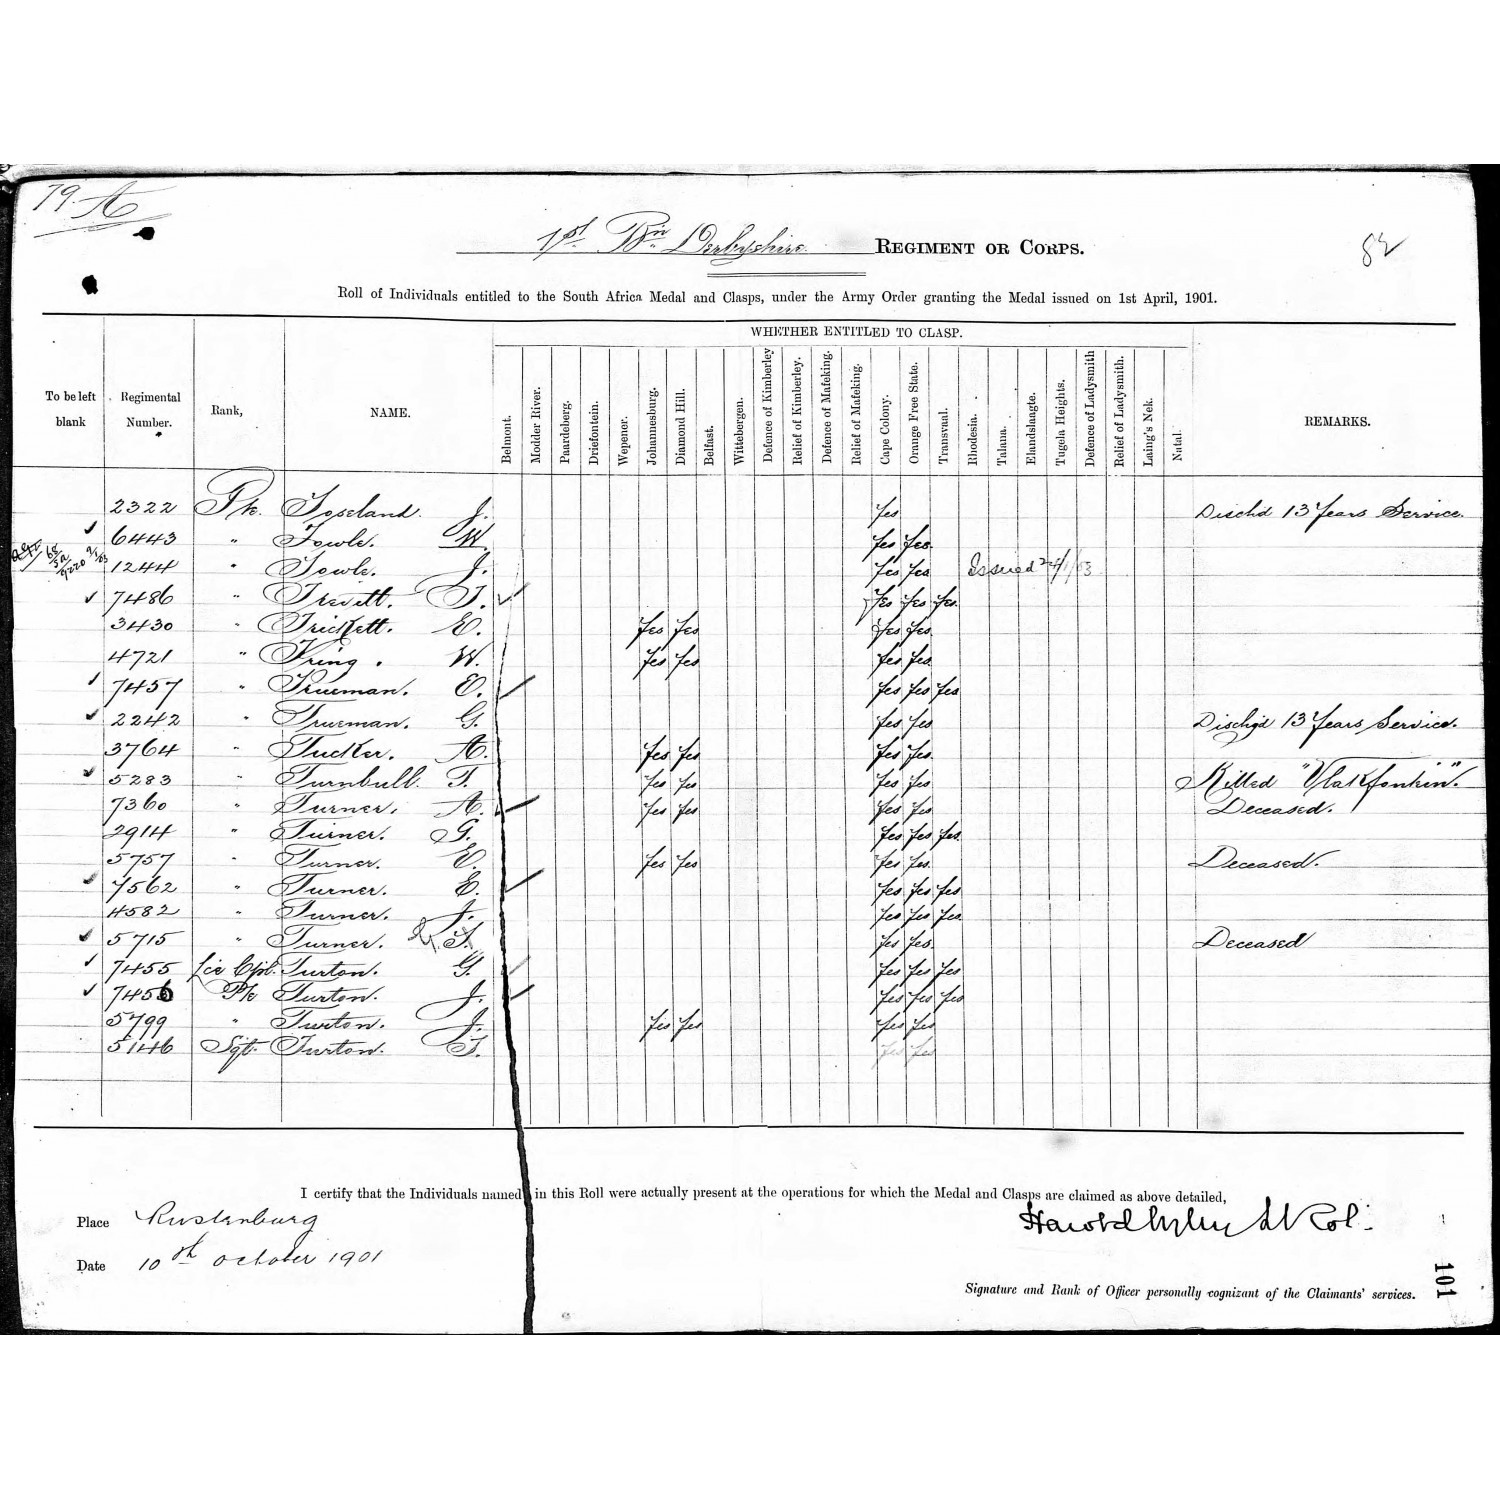 79. A
1st Bn Derbyshire REGIMENT OR CORPS.
82
Roll of Individuals entitled to the South Africa Medal and Clasps, under the Army Order granting the Medal issued on 1st April, 1901.
WHETHER ENTITLED TO CLASP.
To be left blank
Regimental Number.
Rank,
NAME.
Belmont.
Modder River.
Paardeberg.
Driefontein.
Wepener.
Johannesburg.
Diamond Hill.
Belfast.
Wittebergen.
Defence of Kimberley
Relief of Kimberley.
Defence of Mafeking.
Relief of Mafeking.
Cape Colony.
Orange Free State.
Transvaal.
Rhodesia.
Talana.
Elandslaagte.
Tugela Heights.
Defence of Ladysmith
Relief of Ladysmith.
Laing's Nek.
Natal.
REMARKS.
2322 Pte. Toseland. J. Yes Dischd 13 Years Service.
6443 " Towle. W. Yes Yes
1244 " Towle. J. Yes Yes Issued 24/1/03
7486 " Trevitt. T. Yes Yes Yes
3430 " Trickett. E. Yes Yes Yes Yes
4721 " Tring. W. Yes Yes Yes Yes
7457 " Trueman. E. Yes Yes Yes
2242 " Trueman. G. Yes Yes Dischgd 13 Years Service.
3764 " Tucker. A. Yes Yes Yes Yes
5283 " Turnbull. T. Yes Yes Yes Yes Killed "Vlakfontein".
7360 " Turner. A. Yes Yes Yes Yes Deceased.
2914 " Turner. G. Yes Yes Yes
5757 " Turner. E. Yes Yes Yes Yes Deceased.
7562 " Turner. E. Yes Yes Yes
4582 " Turner. J. Yes Yes Yes
5715 " Turner. T. Yes Yes Deceased
7455 Lce Cpl. Turton. G. Yes Yes Yes
7456 Pte Turton. J. Yes Yes Yes
5799 " Turton. J. Yes Yes Yes Yes
5146 Sgt. Turton. T. Yes Yes
I certify that the Individuals named in this Roll were actually present at the operations for which the Medal and Clasps are claimed as above detailed,
Place Rustenburg
Date 10th October 1901
Harold Col.
Signature and Rank of Officer personally cognizant of the Claimants' services.
101